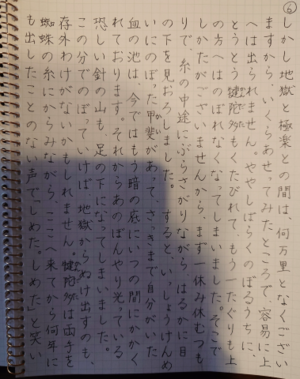 ⑥
しかし地獄と極楽との間は、何万里となくござい
ますから、いくらあせってみたところで、容易に上
へは出られません。ややしばらくのぼるうちに、
とうとう犍陀多もくたびれて、もう一たぐりも上
の方へはのぼれなくなってしまいました。そこで
しかたがございませんから、まず一休み休むつも
りで、糸の中途にぶらさがりながら、はるかに目
の下を見おろしました。するといっしょうけんめ
いにのぼった甲斐があって、さっきまで自分がいた
血の池は、今ではもう暗の底にいつの間にかかく
れております。それからあのぼんやり光っている
恐しい針の山も、足の下になってしまいました。
この分でのぼっていけば、地獄からぬけ出すのも、
存外わけがないかもしれません。犍陀多は両手を
蜘蛛の糸にからみながら、ここへ来てから何年に
も出したことのない声で「しめた。しめた」と笑い